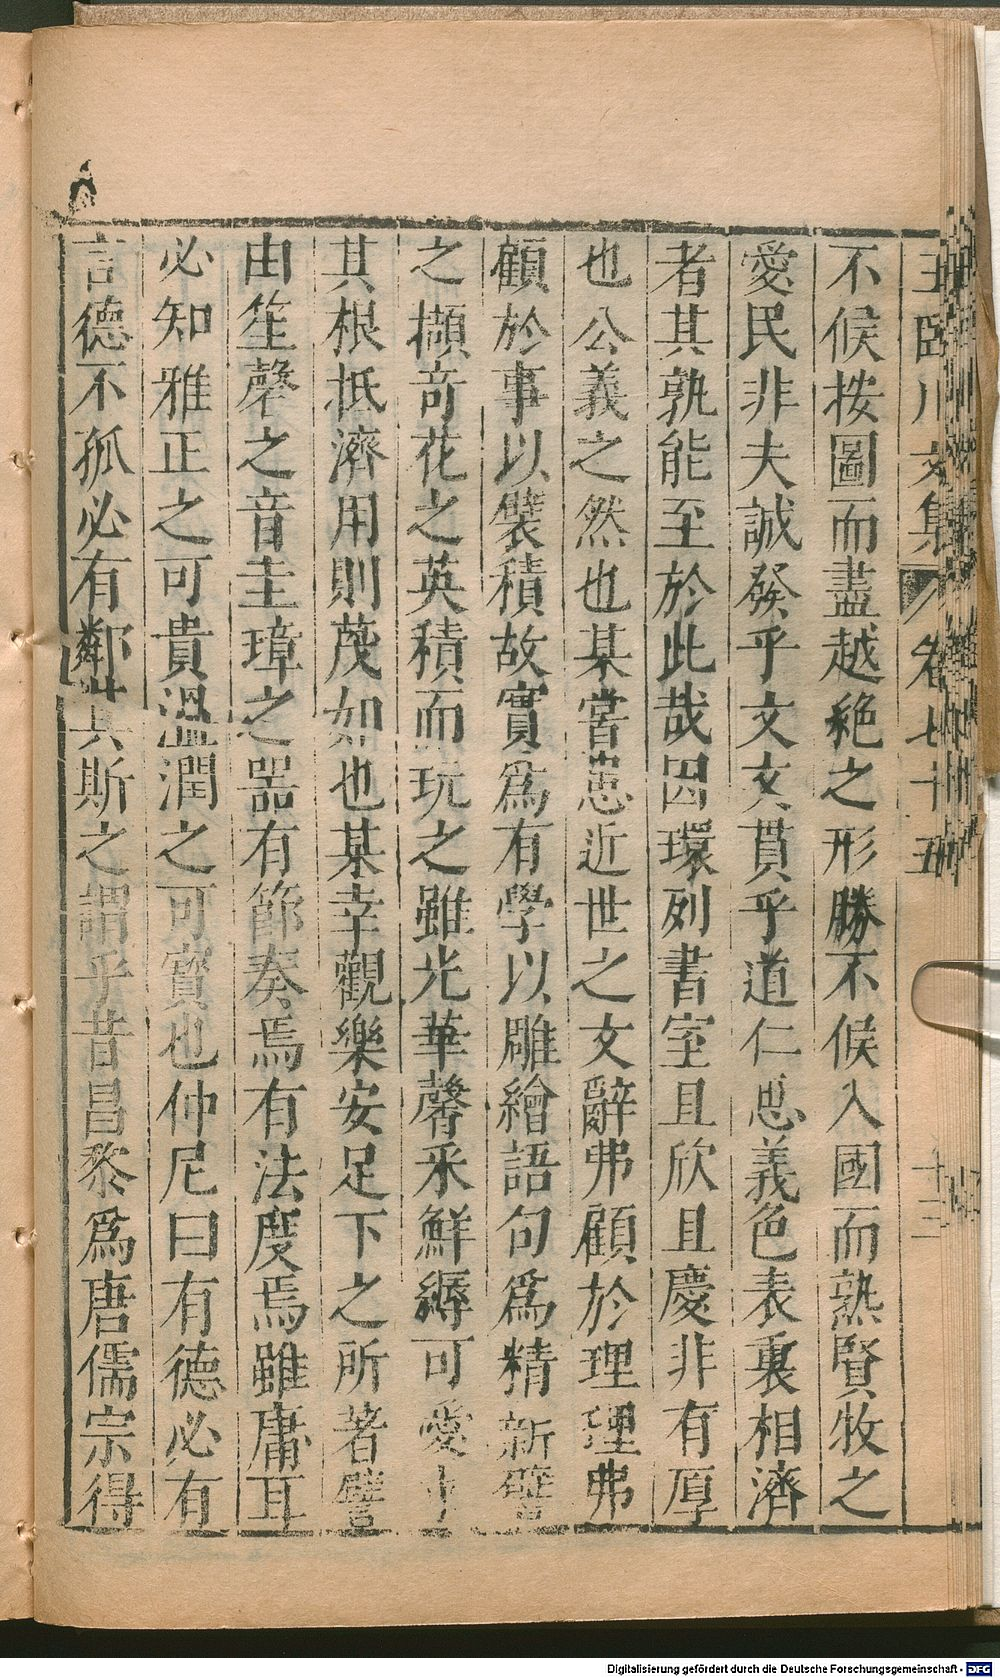 王臨川文集 卷七十五 十二
不候按圖而盡越絶之形勝不候入國而熟賢牧之
愛民非夫誠發乎文文貫乎道仁思義色表裏相濟
者其孰能至於此哉因環列書室且欣且慶非有厚
也公義之然也某嘗患近世之文辭弗顧於理理弗
顧於事以襞積故實爲有學以雕繪語句爲精新譬
之擷奇花之英積而玩之雖光華馨采鮮縟可愛求
其根柢濟用則蔑如也某幸觀樂安足下之所著譬
由笙磬之音圭璋之器有節奏焉有法度焉雖庸耳
必知雅正之可貴溫潤之可寳也仲尼曰有德必有
言德不孤必有鄰其斯之謂乎昔昌黎爲唐儒宗得
Digitalisierung gefördert durch die Deutsche Forschungsgemeinschaft - DFG